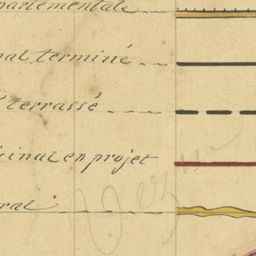 partementale
nal terminé
terrassé
cinal en projet
ral